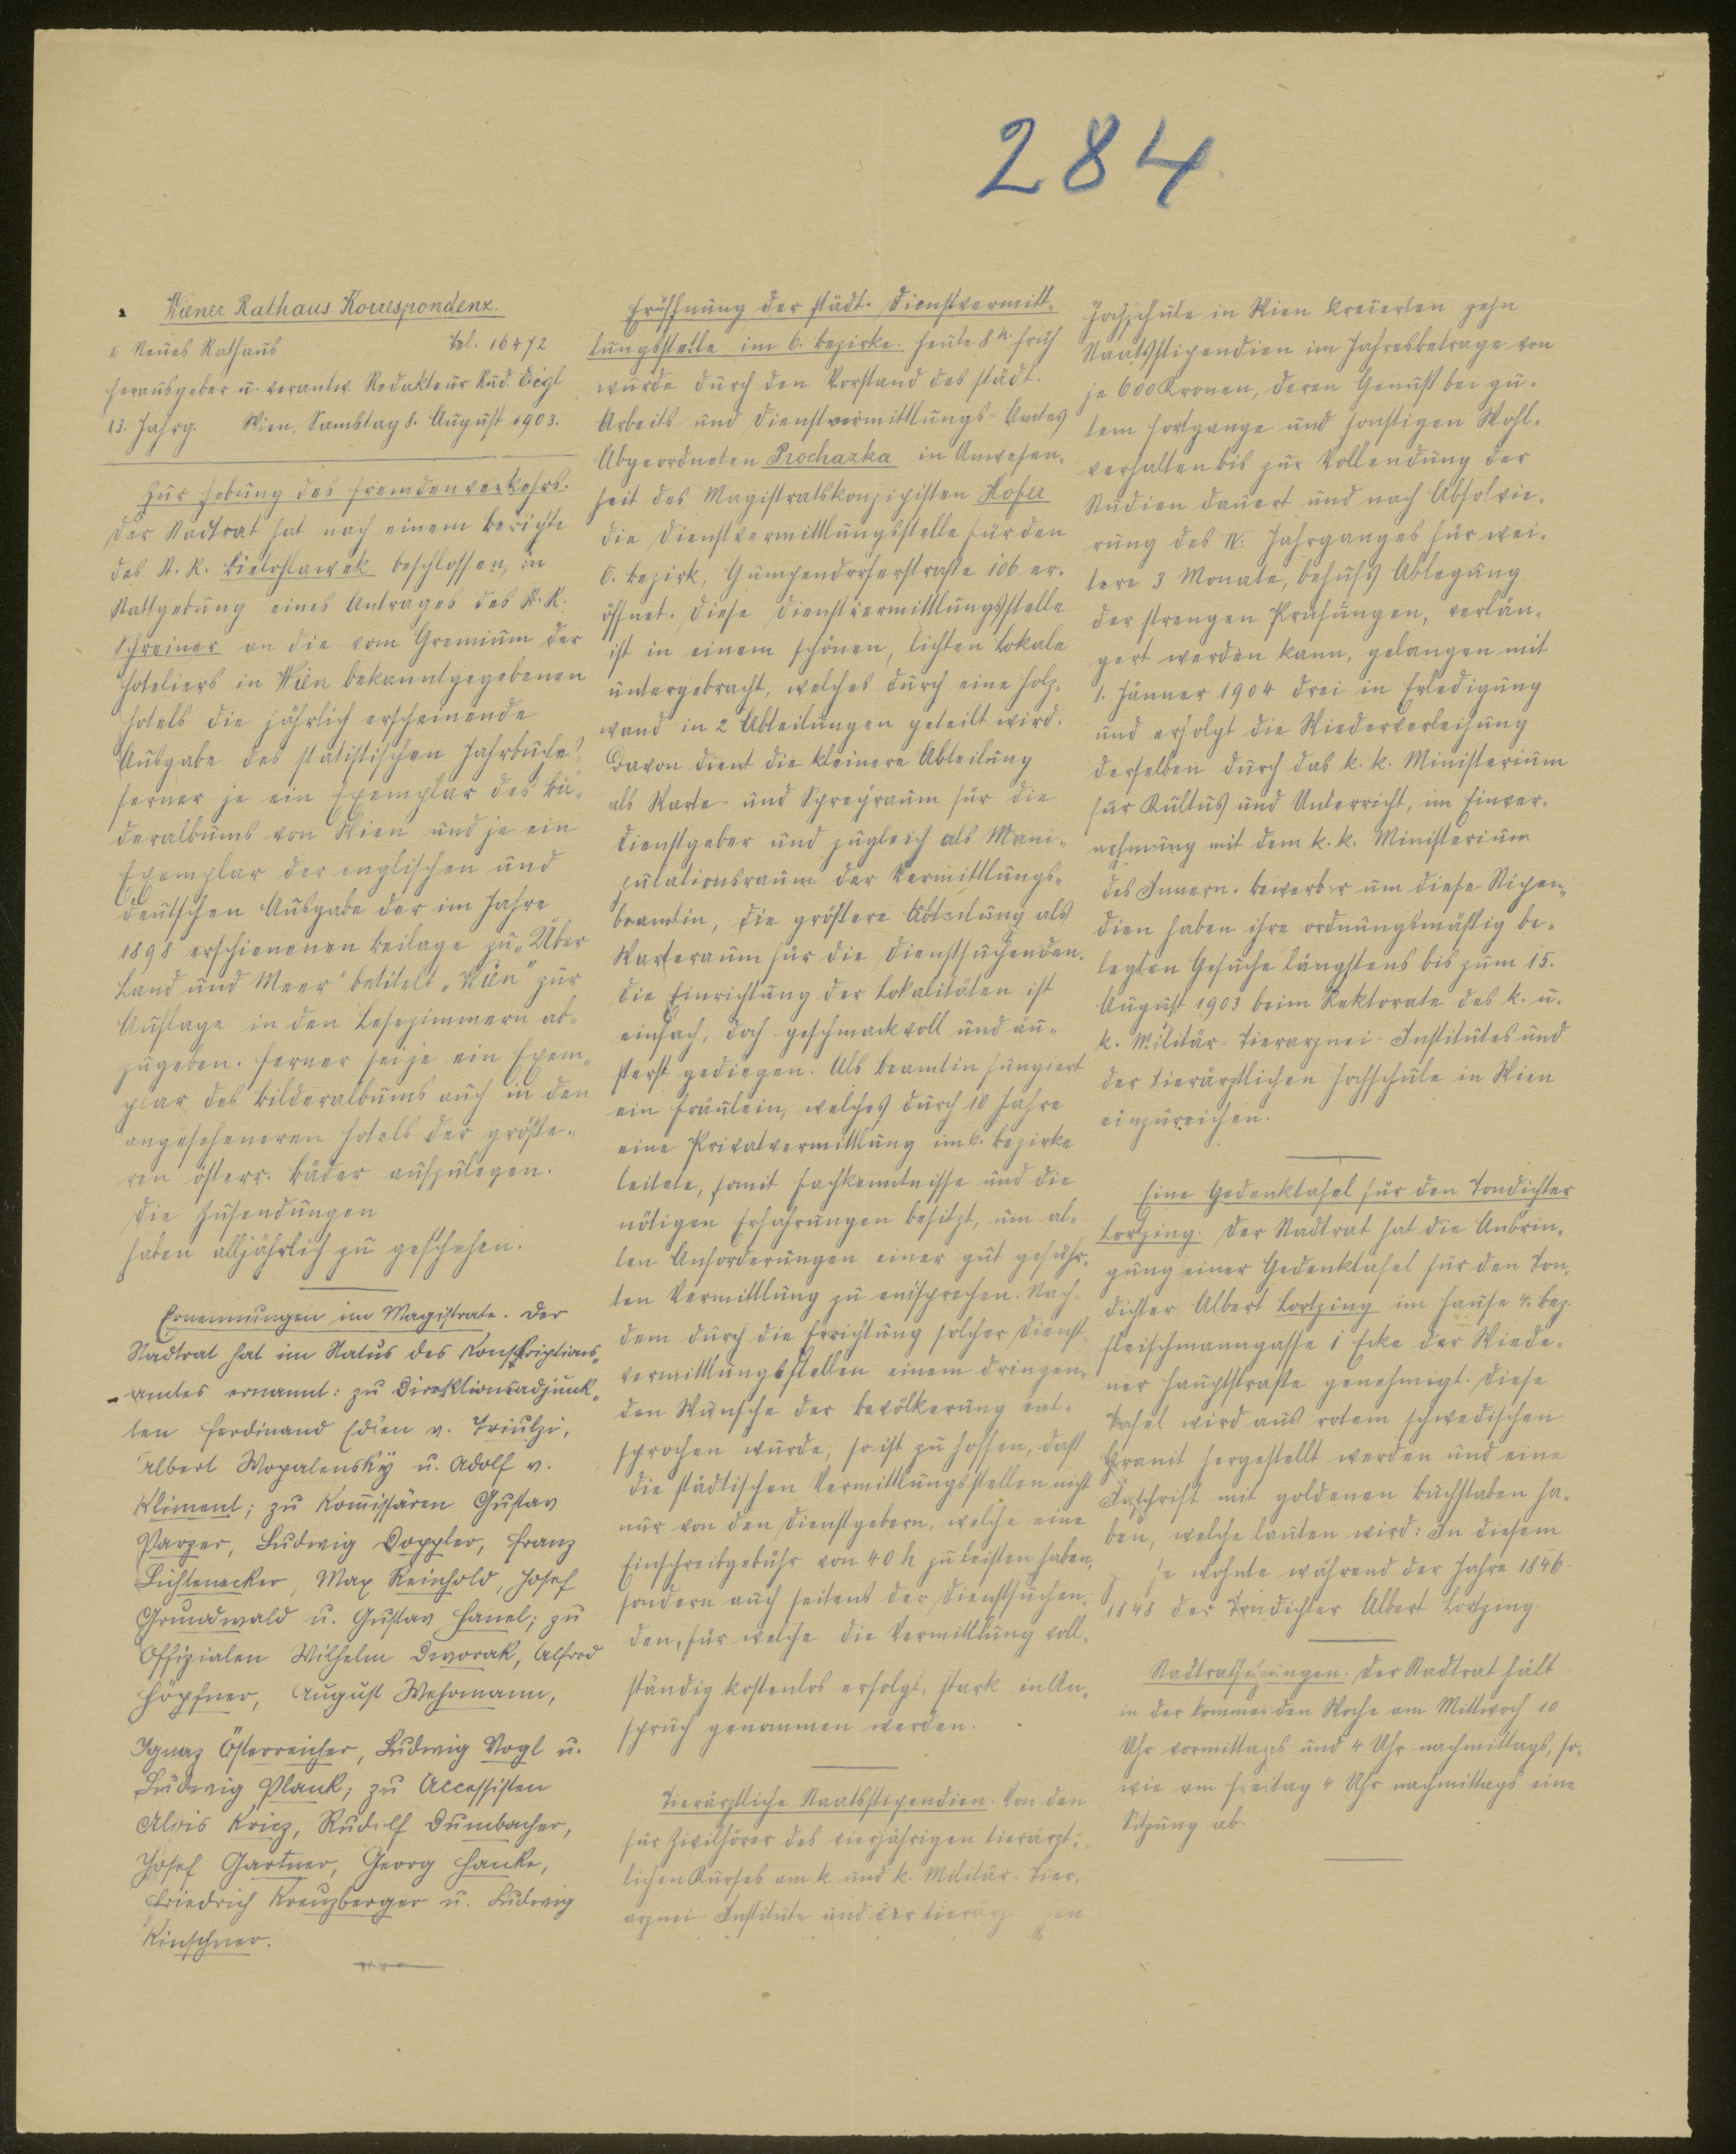 284.
Wiener Rathaus Korrespondenz.
Neues Rathaus Tel. 16472
Herausgeber u. verantw. Redakteur Rud. Eigl
13. Jahrg. Wien, Samstag 8. August 1903.
Zur Hebung des Fremdenverkehrs.
Der Stadtrat hat nach einem Berichte
des St. R. Bielohlawek beschlossen, in
Stattgebung eines Antrages des St. R.
Schreiner an die vom Gremium der
Hoteliers in Wien bekanntgegebenen
Hotels die jährlich erscheinende
Ausgabe des statistischen Jahrbuches
ferner je ein Exemplar des Bil-
deralbums von Wien und je ein
Exemplar der englischen und
deutschen Ausgabe der im Jahre
1898 erschienenen Beilage zu „Über
Land und Meer" betitelt „Wien" zur
Auflage in den Lesezimmern ab-
zugeben. Ferner sei je ein Exem-
plar des Bilderalbums auch in den
angeseheneren Hotels der größe-
ren österr. Bäder aufzulegen.
Die Zusendungen
haben alljährlich zu geschehen.
Ernennungen im Magistrate. Der
Stadtrat hat im Status des Konskriptions-
amtes ernannt: zu Direktionsadjunk-
ten Ferdinand Edlen v. Triulzi,
Albert Wopalensky u. Adolf v.
Kliment; zu Komissären Gustav
Parzer, Ludwig Doppler, Franz
Lichtenecker, Max Reinhold, Josef
Grundwald u. Gustav Hanel; zu
Offizialen Wilhelm Dworak, Alfred
Höpfner, August Wehrmann,
Ignaz Österreicher, Ludwig Vogl u.
Ludwig Plank; zu Accessisten
Alois Kricz, Rudolf Dumbacher,
Josef Gartner, Georg Hanke,
Friedrich Kreuzberger u. Ludwig
Kirschner.
Eröffnung der städt. Dienstvermitt-
lungsstelle im 6. Bezirke. Heute 8 h. früh
wurde durch den Vorstand des städt.
Arbeits und Dienstvermittlungs-Amtes
Abgeordneten Prochazka in Anwesen-
heit des Magistratskonzipisten Hofer
die Dienstvermittlungsstelle für den
6. Bezirk, Gumpendorferstraße 106 er-
öffnet. Diese Dienstvermittlungsstelle
ist in einem schönen, lichten Lokale
untergebracht, welches durch eine Holz-
wand in 2 Abteilungen geteilt wird.
Davon dient die kleinere Abteilung
als Warte- und Sprechraum für die
Dienstgeber und zugleich als Mani-
pulationsraum der Vermittlungs-
beamtin, die größere Abteilung als
Warteraum für die Dienstsuchenden.
Die Einrichtung der Lokalitäten ist
einfach, doch geschmackvoll und äu-
ßerst gediegen. Als Beamtin fungiert
ein Fräulein, welches durch 10 Jahre
eine Privatvermittlung im 6. Bezirke
leitete, somit Fachkenntnisse und die
nötigen Erfahrungen besitzt, um al-
len Anforderungen einer gut geführ-
ten Vermittlung zu entsprechen. Nach-
dem durch die Errichtung solcher Dienst-
vermittlungsstellen einem dringen-
den Wunsche der Bevölkerung ent-
sprochen wurde, so ist zu hoffen, daß
die städtischen Vermittlungsstellen nicht
nur von den Dienstgebern, welche eine
Einschreibgebühr von 40 h zu leisten haben,
sondern auch seitens der Dienstsuchen-
den, für welche die Vermittlung voll-
ständig kostenlos erfolgt, stark in An-
spruch genommen werden.
Tierärztliche Staatsstipendien. Von den
für Zivilhörer des vierjährigen tierärzt-
lichen Kurses am k. und k. Militär-Tier-
arznei-Institute und der
Hochschule in Wien kreierten zehn
Staatsstipendien im Jahresbetrage von
je 600 Kronen, deren Genuß bei gu-
tem Fortgange und sonstigen Wohl-
verhalten bis zur Vollendung der
Studien dauert und nach Absolvie-
rung des IV. Jahrganges für wei-
tere 3 Monate, behufs Ablegung
der strengen Prüfungen, verlän-
gert werden kann, gelangen mit
1. Jänner 1904 drei in Erledigung
und erfolgt die Wiederverleihung
derselben durch das k. k. Ministerium
für Kultus und Unterricht, im Einver-
nehmung mit dem k. k. Ministerium
des Innern. Bewerber um diese Stipen-
dien haben ihre ordnungsmäßig be-
legten Gesuche längstens bis zum 15.
August 1903 beim Rektorate des k. u.
k. Militär-Tierarznei-Institutes und
der tierärztlichen Hochschule in Wien
einzureichen.
Eine Gedenktafel für den Tondichter
Lortzing. Der Stadtrat hat die Anbrin-
gung einer Gedenktafel für den Ton-
dichter Albert Lortzing im Hause 4. Bez.
Fleischmanngasse 1 Ecke der Wiede-
ner Hauptstraße genehmigt. Diese
Tafel wird aus rotem schwedischen
Granit hergestellt werden und eine
Inschrift mit goldenen Buchstaben ha-
ben, welche lauten wird: In diesem
se wohnte während der Jahre 1846-
1848 der Tondichter Albert Lortzing.
Stadtratssitzungen. Der Stadtrat hält
in der kommenden Woche am Mittwoch 10
Uhr vormittags und 4 Uhr nachmittags, so-
wie am Freitag 4 Uhr nachmittags eine
Sitzung ab.